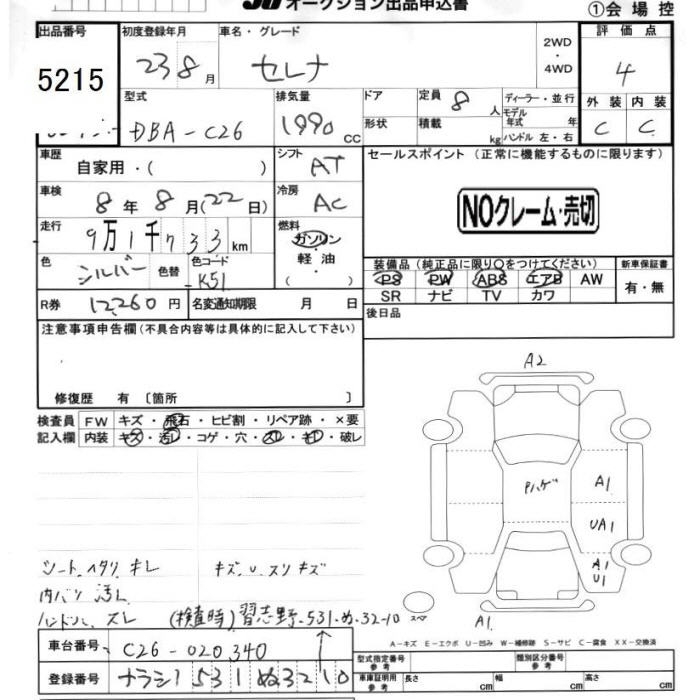 オークション出品申込書
①会場控
出品番号 5215
初度登録年月 23 8月
車名・グレード セレナ
2WD・4WD
評価点 4
外装 C 内装 C
型式 DBA-C26
排気量 1990 cc
ドア 形状
定員 8人
積載 kg
ディーラー・並行
モデル年式 年
ハンドル 左・右
車歴 自家用・( )
シフト AT
セールスポイント (正常に機能するものに限ります)
車検 8年8月(22日)
冷房 AC
NOクレーム・売切
走行 9万1千733km
燃料 ガソリン 軽油 ( )
色 シルバー 色替 色コード K51
装備品 (純正品に限り○をつけてください)
PS PW ABS エアB AW
SR ナビ TV カワ
新車保証書 有・無
R券 12,260円 名変通知期限 月 日
後日品
注意事項申告欄 (不具合内容等は具体的に記入して下さい)
修復歴 有 〔箇所 〕
検査員記入欄
FW キズ・飛石・ヒビ割・リペア跡・×要
内装 キズ・汚レ・コゲ・穴・スレ・キレ・破レ
A2
Pハゲ
A1
UA1
A1
U1
A1
スペア
シート、ヘタリ キレ キズ、U、スリキズ
内バリ 汚レ
ハンドル、スレ (検査時) 習志野-531-ぬ-32-10
A-キズ E-エクボ U-凹み W-補修跡 S-サビ C-腐食 XX-交換済
車台番号 C26-020340
登録番号 ナラシノ 531 ぬ 3210
型式指定番号 参考
類別区分番号 参考
車庫証明用 参考 長さ cm 幅 cm 高さ cm